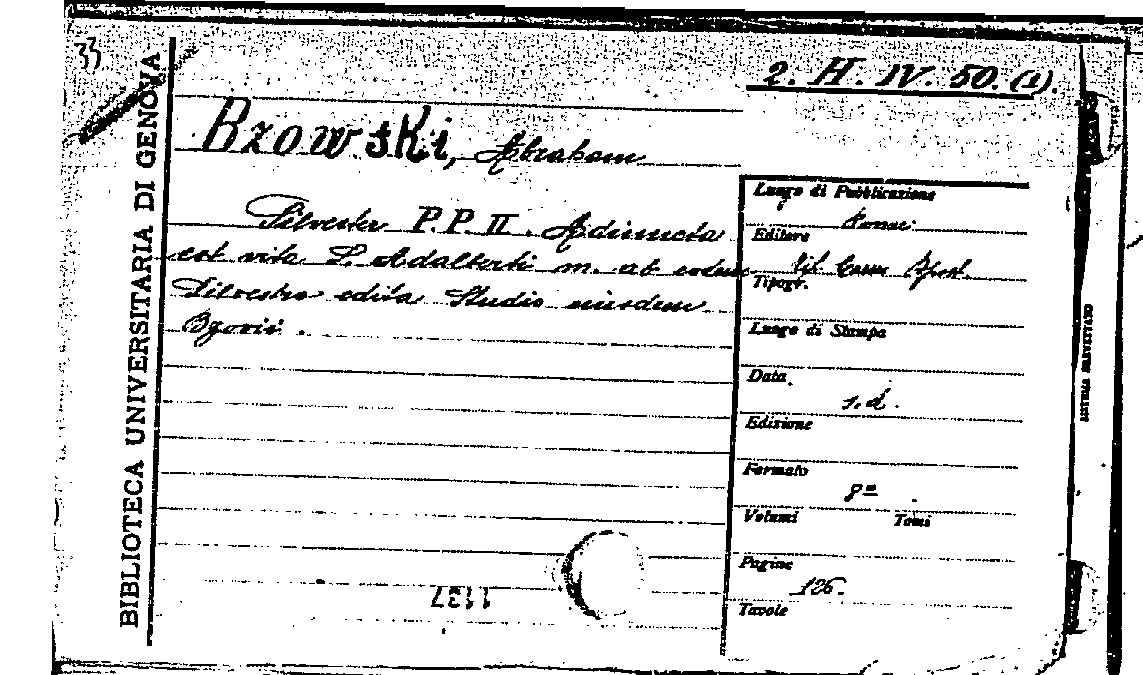 33
2. H. IV. 50. (1).
BIBLIOTECA UNIVERSITARIA DI GENOVA
Bzowski, Abraham
Silvester P. P. II. Adiuncta
est vita S. Adalberti m. ab eodem
Silvestro edita Studio eiusdem
Bzovii.
Luogo di Pubblicazione
Romae
Editore
Tipogr.
Luogo di Stampa
Data
s. d.
Edizione
Formato
8º
Volumi Tomi
Pagine
126.
Tavole
1137